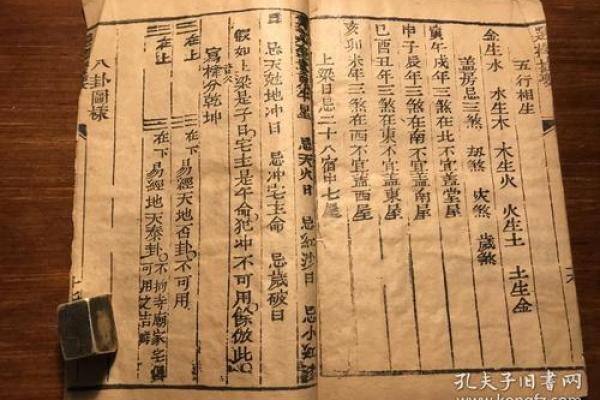 五行相生
金生水 水生木 木生火 火生土 土生金
蓋房忌三煞 刼煞 灾煞 歲煞
寅午戌年三煞在北不宜蓋堂屋
申子辰年三煞在南不宜蓋南屋
巳酉丑年三煞在東不宜蓋東屋
亥卯未年三煞在西不宜蓋西屋
上梁日忌二十八宿中七星
忌天火日 忌紅沙日 忌小紅
日 忌天尅地冲日 忌冲宅主命 忌歲破日
假如上梁是子日宅主是午命犯冲不可用餘倣此
寫樑分乾坤
三在上 三在下易經天地否卦不可用
三在上 三在下易經地天泰卦不拘寺廟家宅俱可用之吉
八卦圖樣
孔夫子旧書网
www.kongfz.com